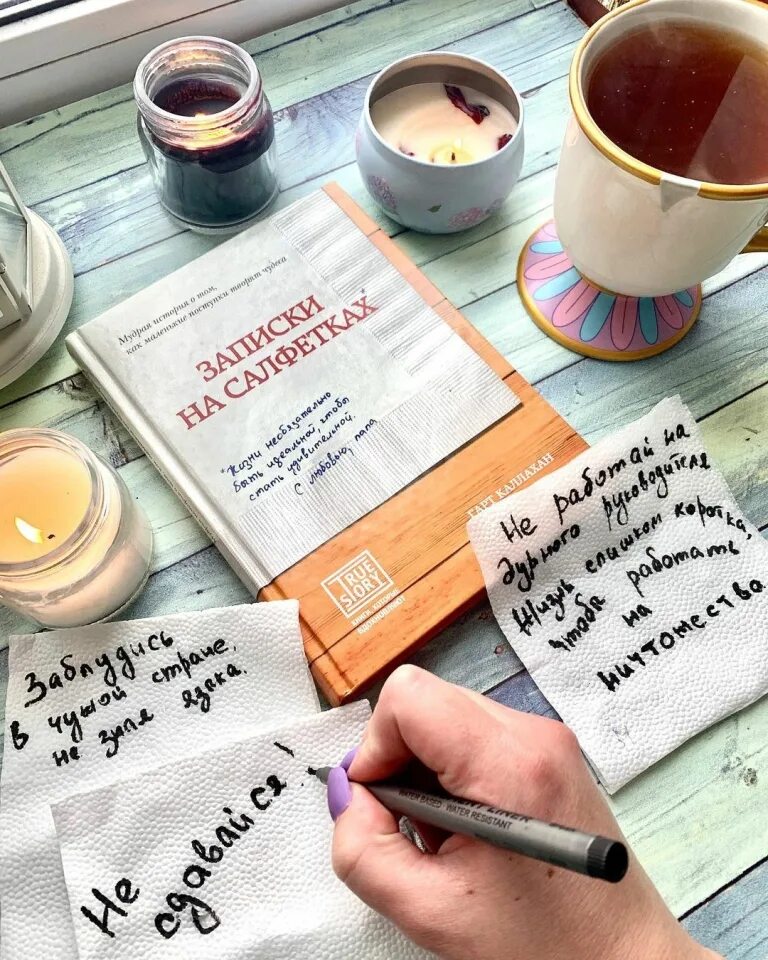 Мудрая история о том,
как маленькие поступки творят чудеса
ЗАПИСКИ
НА САЛФЕТКАХ*
*Жизни необязательно
быть идеальной, чтобы
стать удивительной.
С любовью, папа
ГАРТ КАЛЛАХАН
TRUE
STORY
КНИГИ, КОТОРЫЕ
ВДОХНОВЛЯЮТ
Не работай на
дурного руководителя
Жизнь слишком коротка,
чтобы работать
на
ничтожества
Заблудись
в чужой стране,
не зная языка.
Не
сдавайся!
LINER
WATER BASED · WATER RESISTANT